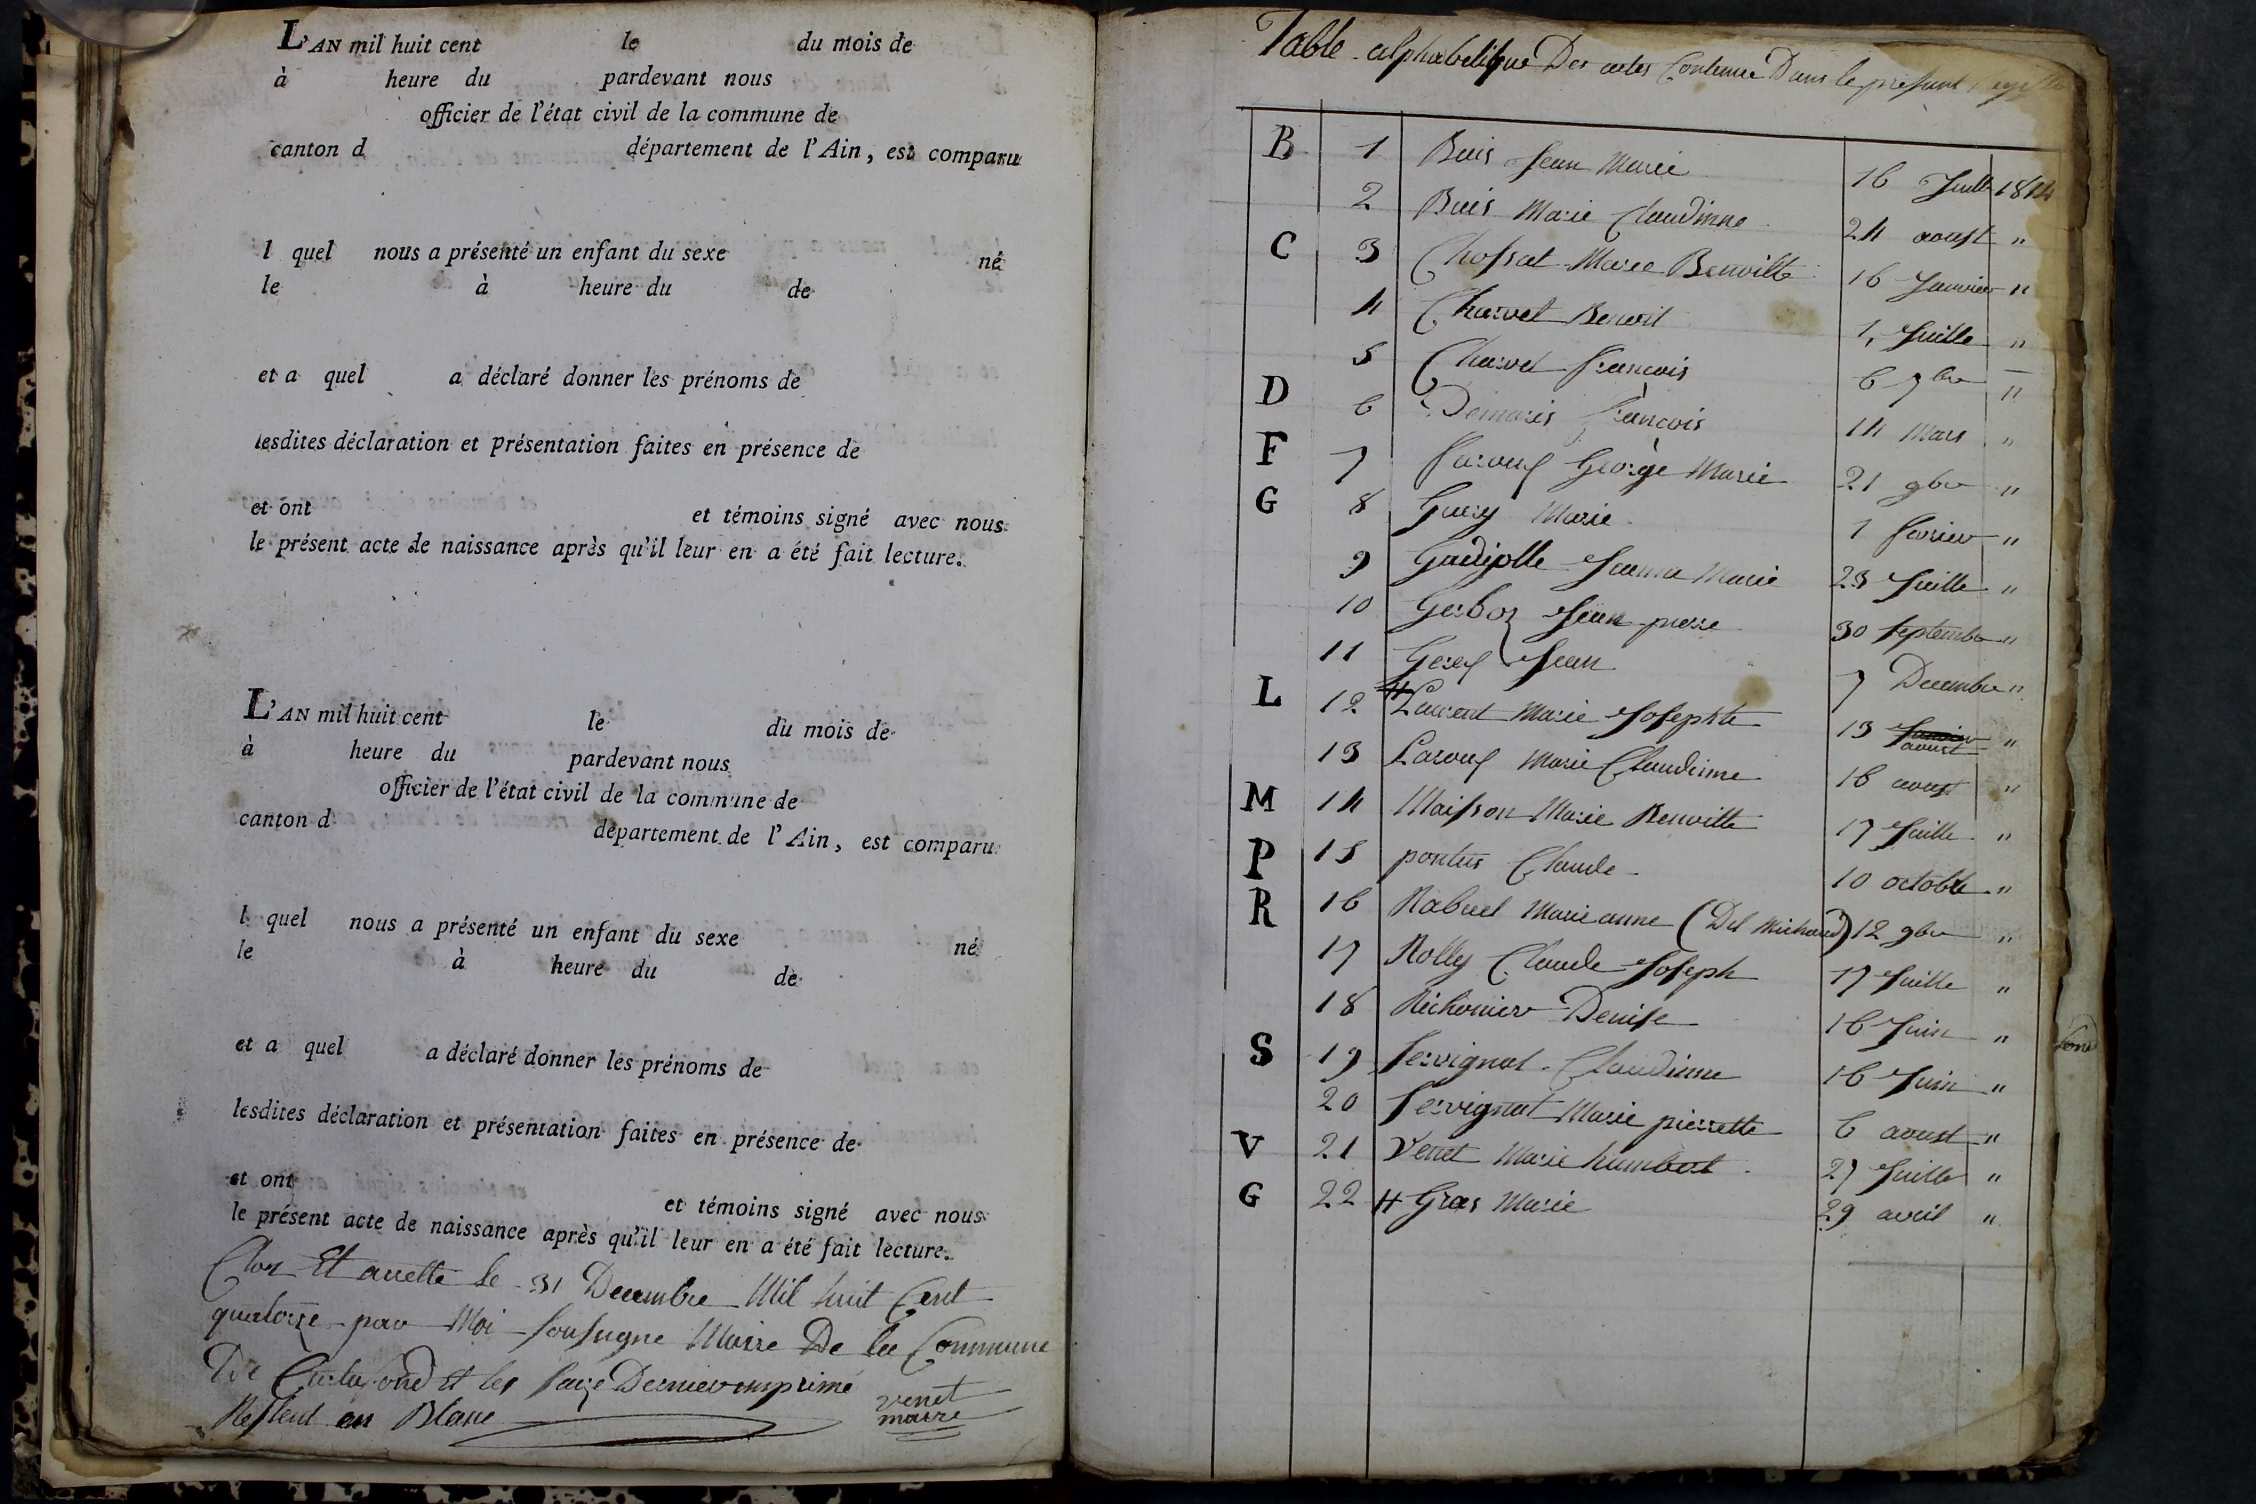 L'AN mil huit cent le du mois de
à heure du pardevant nous
officier de l'état civil de la commune de
canton d département de l'Ain, est comparu
l quel nous a présenté un enfant du sexe né
le à heure du de
et a quel a déclaré donner les prénoms de
lesdites déclaration et présentation faites en présence de
et ont et témoins signé avec nous
le présent acte de naissance après qu'il leur en a été fait lecture.
L'AN mil huit cent le du mois de
à heure du pardevant nous
officier de l'état civil de la commune de
canton d département de l'Ain, est comparu
l quel nous a présenté un enfant du sexe né
le à heure du de
et a quel a déclaré donner les prénoms de
lesdites déclaration et présentation faites en présence de
et ont et témoins signé avec nous
le présent acte de naissance après qu'il leur en a été fait lecture.
Clos Et arretté le 31 Decembre Mil huit Cent
quatorze par Moi sousigne Maire De la Commune
De et les saize Dernier imprimé
Restent en Blanc
venet
maire
Table alphabetique Des actes Contenue Dans le present
B 1 Buis Jean Marie 16 Juill 1814
2 Buis Marie Claudinne 24 aoust "
C 3 Chossat Marie Benoitte 16 Janvier "
4 Charvet Benoit 1, Juille "
5 Charvet françois 6 7bre "
D 6 Demaris françois 14 Mars "
F 7 George Marie 21 9bre "
G 8 Guery Marie 1 fevrier "
9 Jeanne Marie 23 Juille "
10 Gerboz Jean pierre 30 septembre "
11 Jean 7 Decembre "
L 12 # Laurent Marie Josephte 13 aoust "
13 Marie Claudinne 16 aoust "
M 14 Maisson Marie Benoitte 17 Juille "
P 15 pontus Claude 10 octobre "
R 16 Rabuel Marie anne (Dit Michaud) 12 9bre "
17 Rolly Claude Joseph 17 Juille "
18 Richonier Denise 16 Juin "
S 19 Servignat Claudinne 16 Juin "
20 Servignat Marie pierrette 6 aoust "
V 21 Venet Marie humbert 27 Juille "
G 22 # Gras Marie 29 avril "